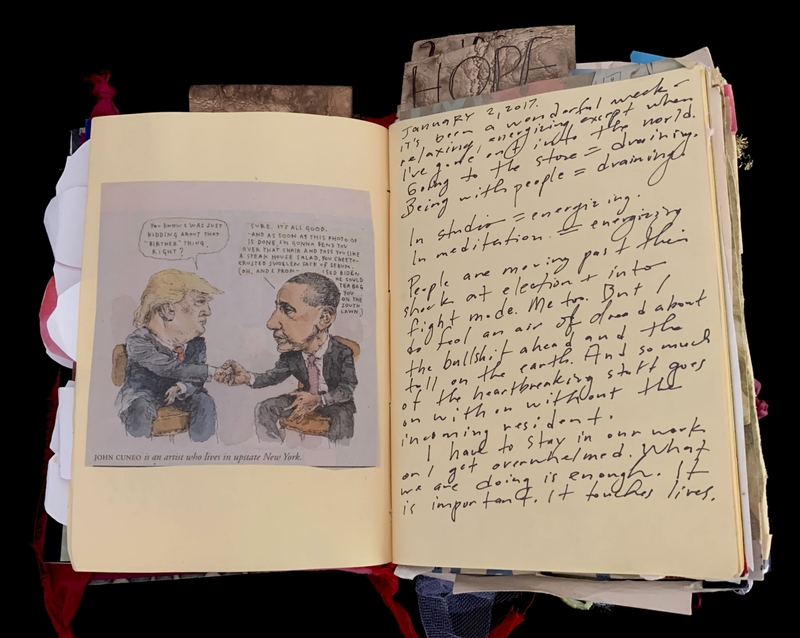 HOPE
YOU KNOW I WAS JUST
KIDDING ABOUT THAT
"BIRTHER" THING,
RIGHT?
SURE. IT'S ALL GOOD.
AND AS SOON AS THIS PHOTO OP
IS DONE, I'M GONNA BEND YOU
OVER THAT CHAIR AND TOSS YOU LIKE
A STEAK HOUSE SALAD, YOU CHEETO-
CRUSTED SWOLLEN SACK OF SEBUM.
(OH, AND I PROM
ISED BIDEN
HE COULD
TEA BAG
YOU
ON THE
SOUTH
LAWN.)
JOHN CUNEO is an artist who lives in upstate New York.
JANUARY 2, 2017.
it's been a wonderful week -
relaxing, energizing except when
I've gone out into the world.
Going to the store = draining.
Being with people = draining.
In studio = energizing.
In meditation = energizing
People are moving past their
shock at election & into
fight mode. Me too. But I
do feel an air of dread about
the bullshit ahead and the
toll on the earth. And so much
of the heartbreaking stuff goes
on with or without the
incoming resident.
I have to stay in our work
or I get overwhelmed. What
we are doing is enough. It
is important. It touches lives.